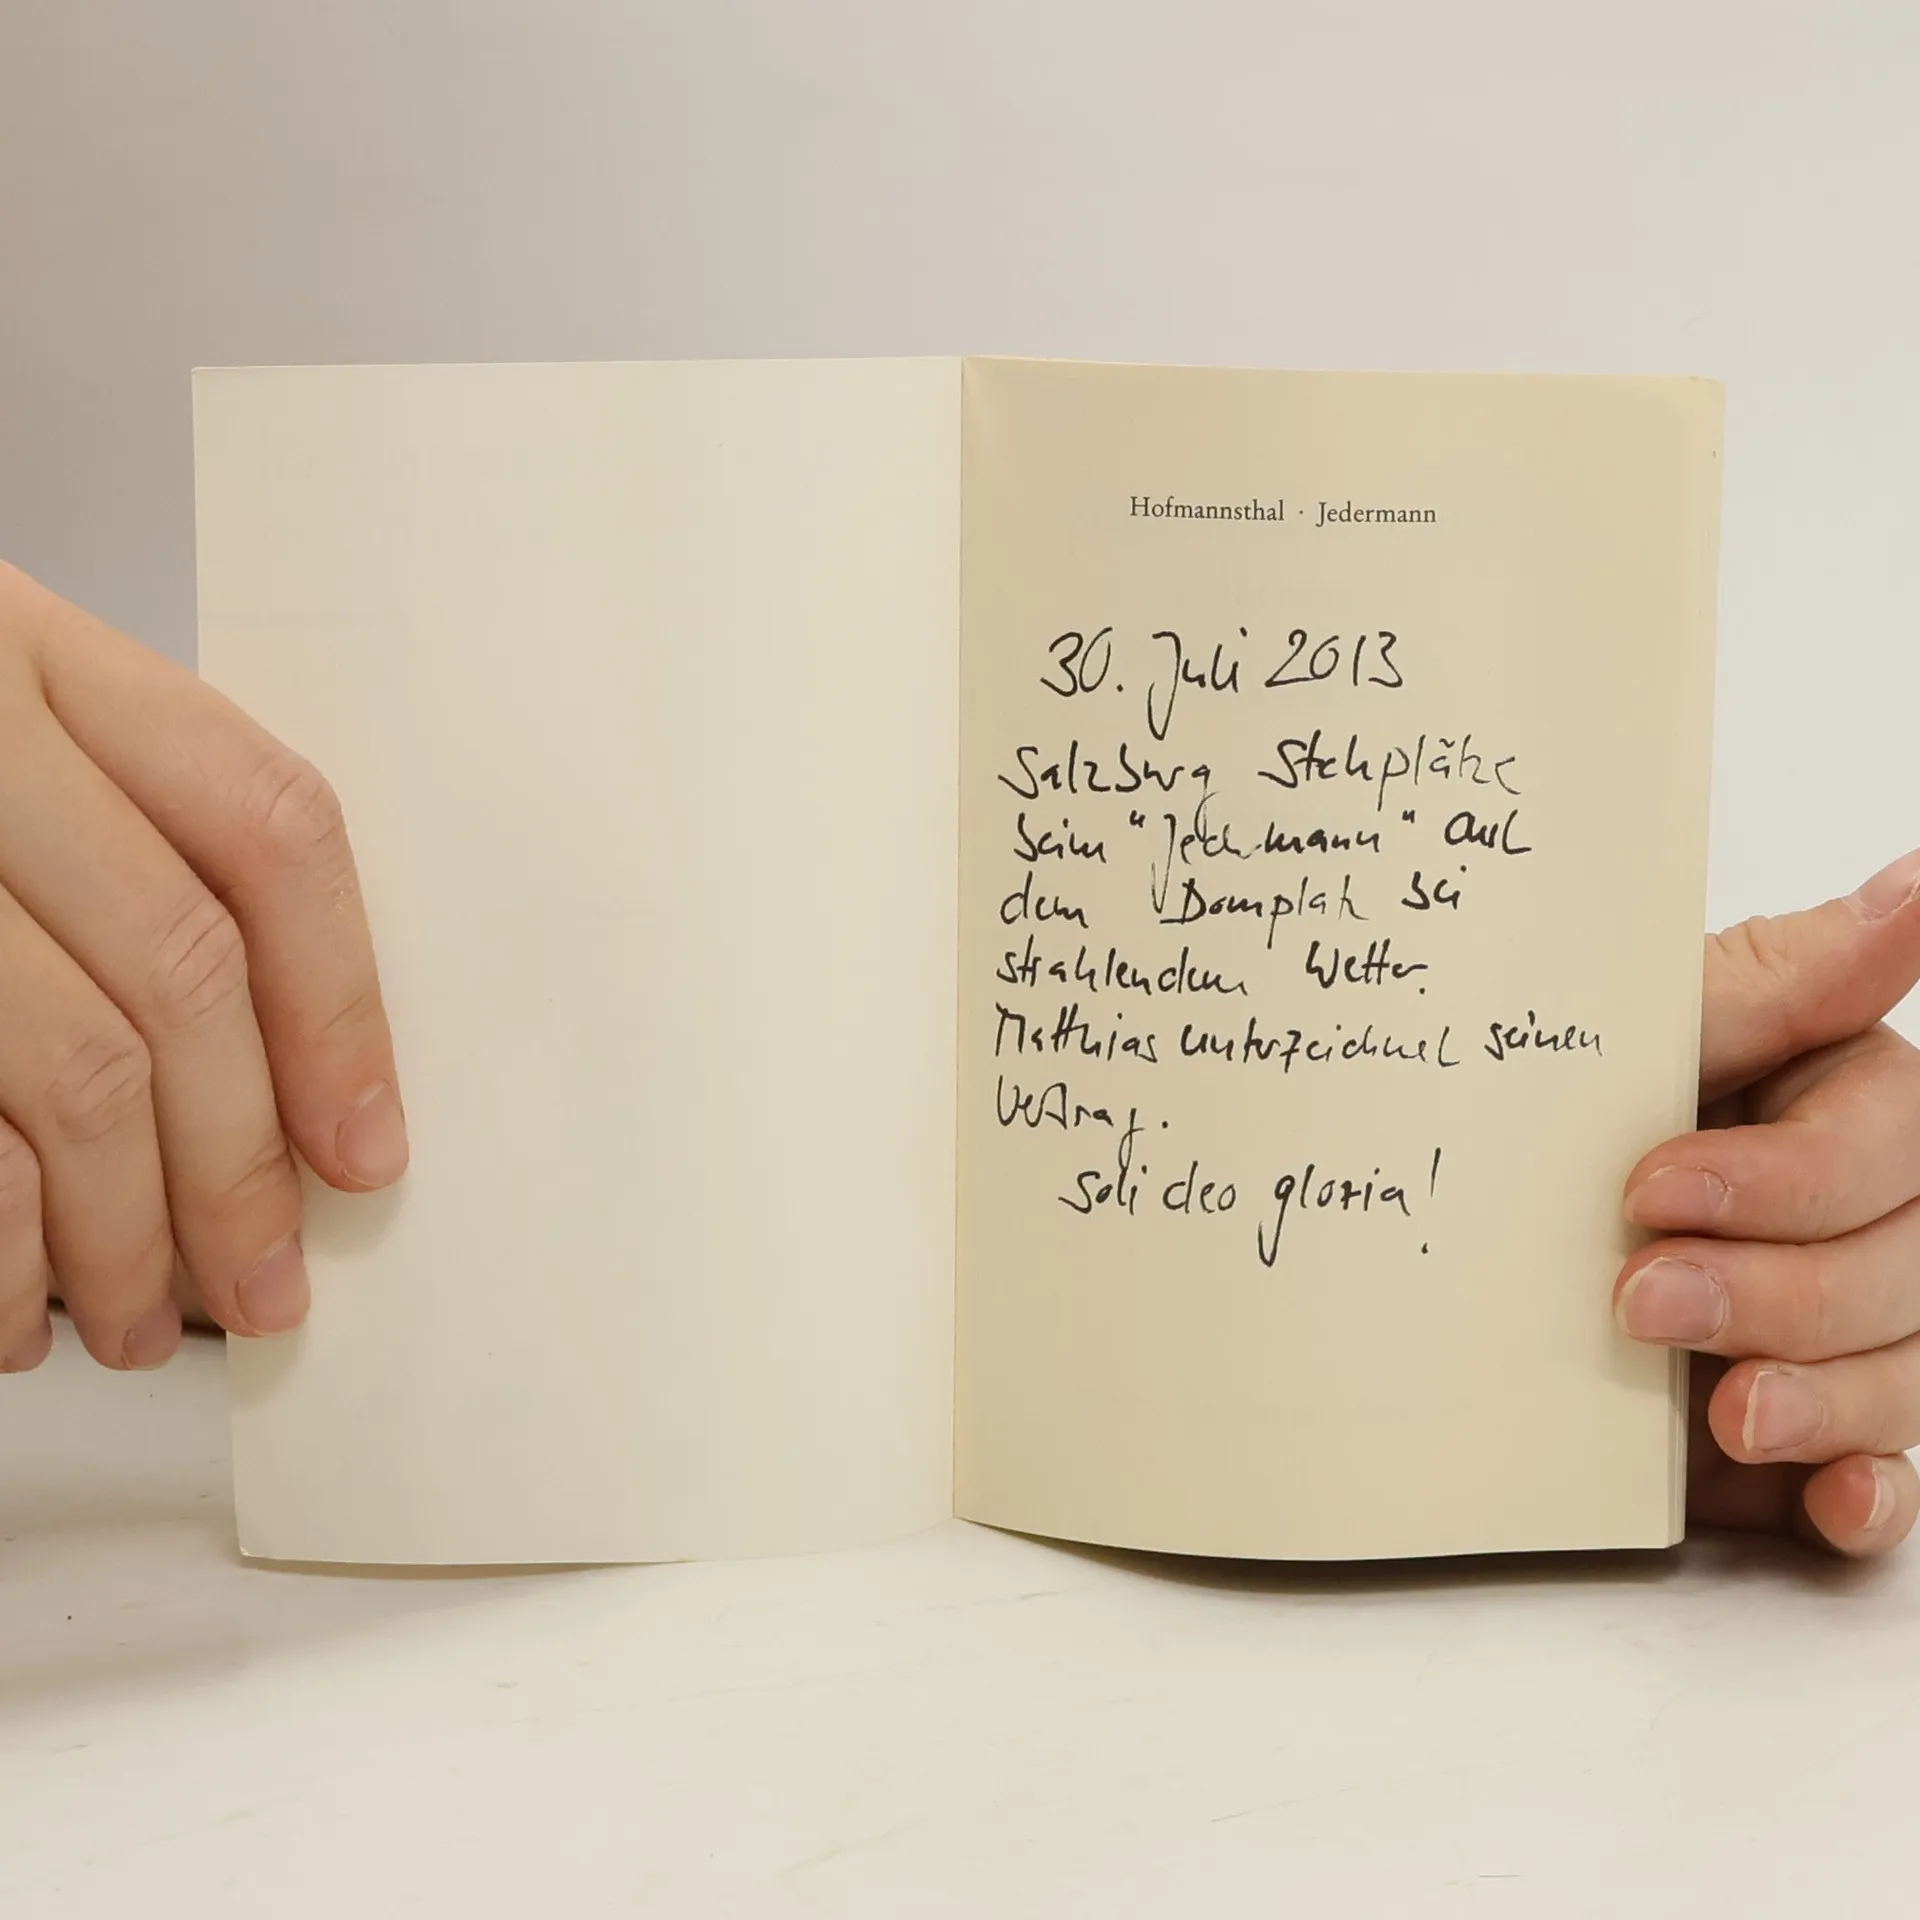 Hofmannsthal · Jedermann
30. Juli 2013
Salzburg Stehplätze
beim "Jedermann" auf
dem Domplatz bei
strahlendem Wetter.
Matthias unterzeichnet seinen
Vertrag.
Soli deo gloria!